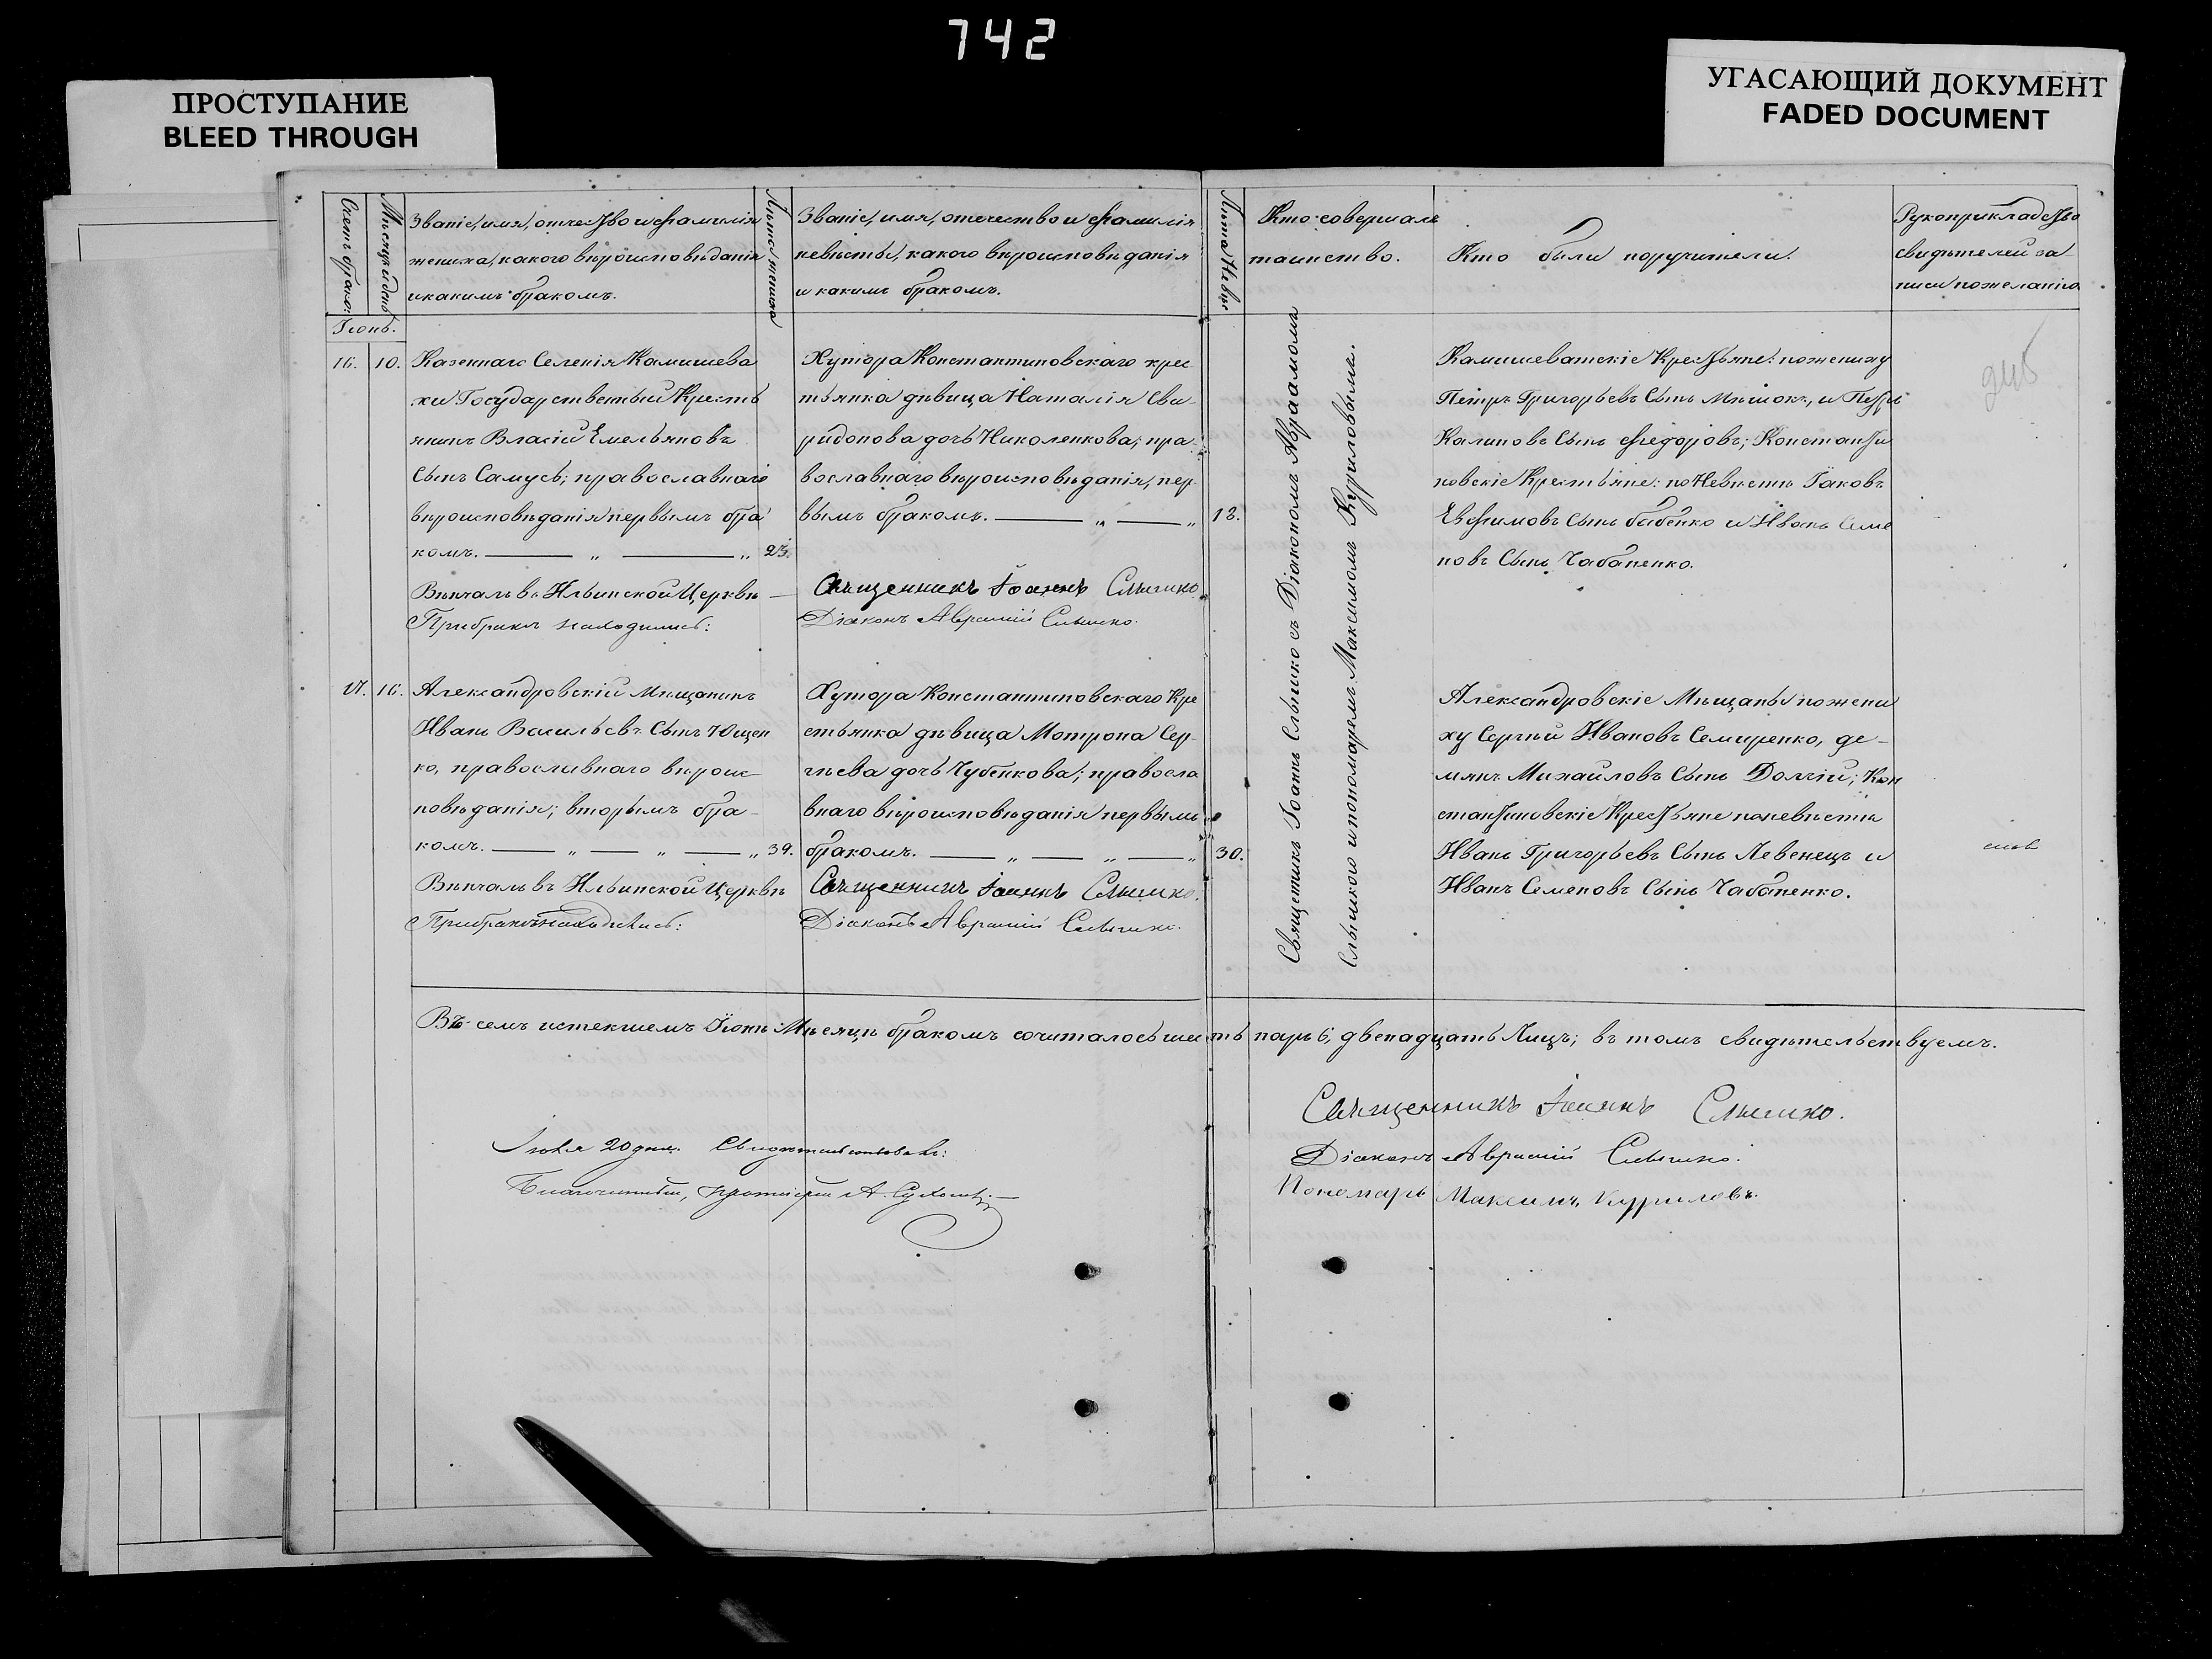 742
ПРОСТУПАНИЕ
BLEED THROUGH
УГАСАЮЩИЙ ДОКУМЕНТ
FADED DOCUMENT
Счетъ браков:
Мѣсяцъ и день
Званіе, имя, отчество и фамилія
жениха, какого вѣроисповѣданія
и какимъ бракомъ.
Лѣта жениха
Званіе, имя, отечество и фамилія
невѣсты, какого вѣроисповѣданія
и какимъ бракомъ.
Лѣта Невѣс
Кто совершалъ
таинство.
Кто были поручители.
Рукоприкладство
свидѣтелей за
писи по желанію
Іюнь.
16. 10.
Казеннаго Селенія Камышева
хи Государственный Кресть
янинъ Власій Емельяновъ
Сынъ Самусь; православнаго
вѣроисповѣданія первымъ бра
комъ. 23.
Вѣнчалъ въ Ильинской Церквѣ
При бракѣ находились:
Хутора Константиновскаго крес
тьянка дѣвица Наталія Сви-
ридонова дочь Николенкова; пра-
вославнаго вѣроисповѣданія, пер-
вымъ бракомъ. 18.
Священникъ Іоаннъ Слышко.
Діаконъ Аврамій Слышко.
Священникъ Іоаннъ Слышко съ Діакономъ Авраамомъ
Слышкою и пономаремъ Максимомъ Курриловымъ.
Камышеватскіе Крестьяне: по жениху
Петръ Григорьевъ Сынъ Мѣшокъ, и Петръ
Калиновъ Сынъ Федоровъ; Константи
новскіе Крестьяне: по Невѣстѣ Іаковъ
Евфимовъ Сынъ бабенко и Иванъ Семе
новъ Сынъ Чабаненко.
17. 16.
Александровскій Мѣщанинъ
Иванъ Васильевъ Сынъ Ющен
ко, православнаго вѣроис-
повѣданія; вторымъ бра-
комъ. 39.
Вѣнчалъ въ Ильинской Церквѣ
При бракѣ находились:
Хутора Константиновскаго Кре
стьянка дѣвица Мотрона Сер-
гѣева дочь Чубенкова; правосла
внаго вѣроисповѣданія первымъ
бракомъ. 30.
Священникъ Іоаннъ Слышко.
Діаконъ Аврамій Слышко.
Александровскіе Мѣщаны по жени
ху Сергѣй Ивановъ Семиренко, де-
мянъ Михайловъ Сынъ Долгій; Кон
стантиновскіе Крестьяне по невѣстѣ
Иванъ Григорьевъ Сынъ Левенецъ и
Иванъ Семеновъ Сынъ Чабаненко.
Въ семъ истекшемъ Іюнѣ Мѣсяцѣ бракомъ сочиталось шесть паръ 6, двенадцать Лицъ; въ томъ свидѣтельствуемъ.
Священникъ Іоаннъ Слышко.
Діаконъ Аврамій Слышко.
Пономарь Максимъ Курриловъ.
20 дня. Свидѣтельствовалъ:
Благочинный, протоіерей А.